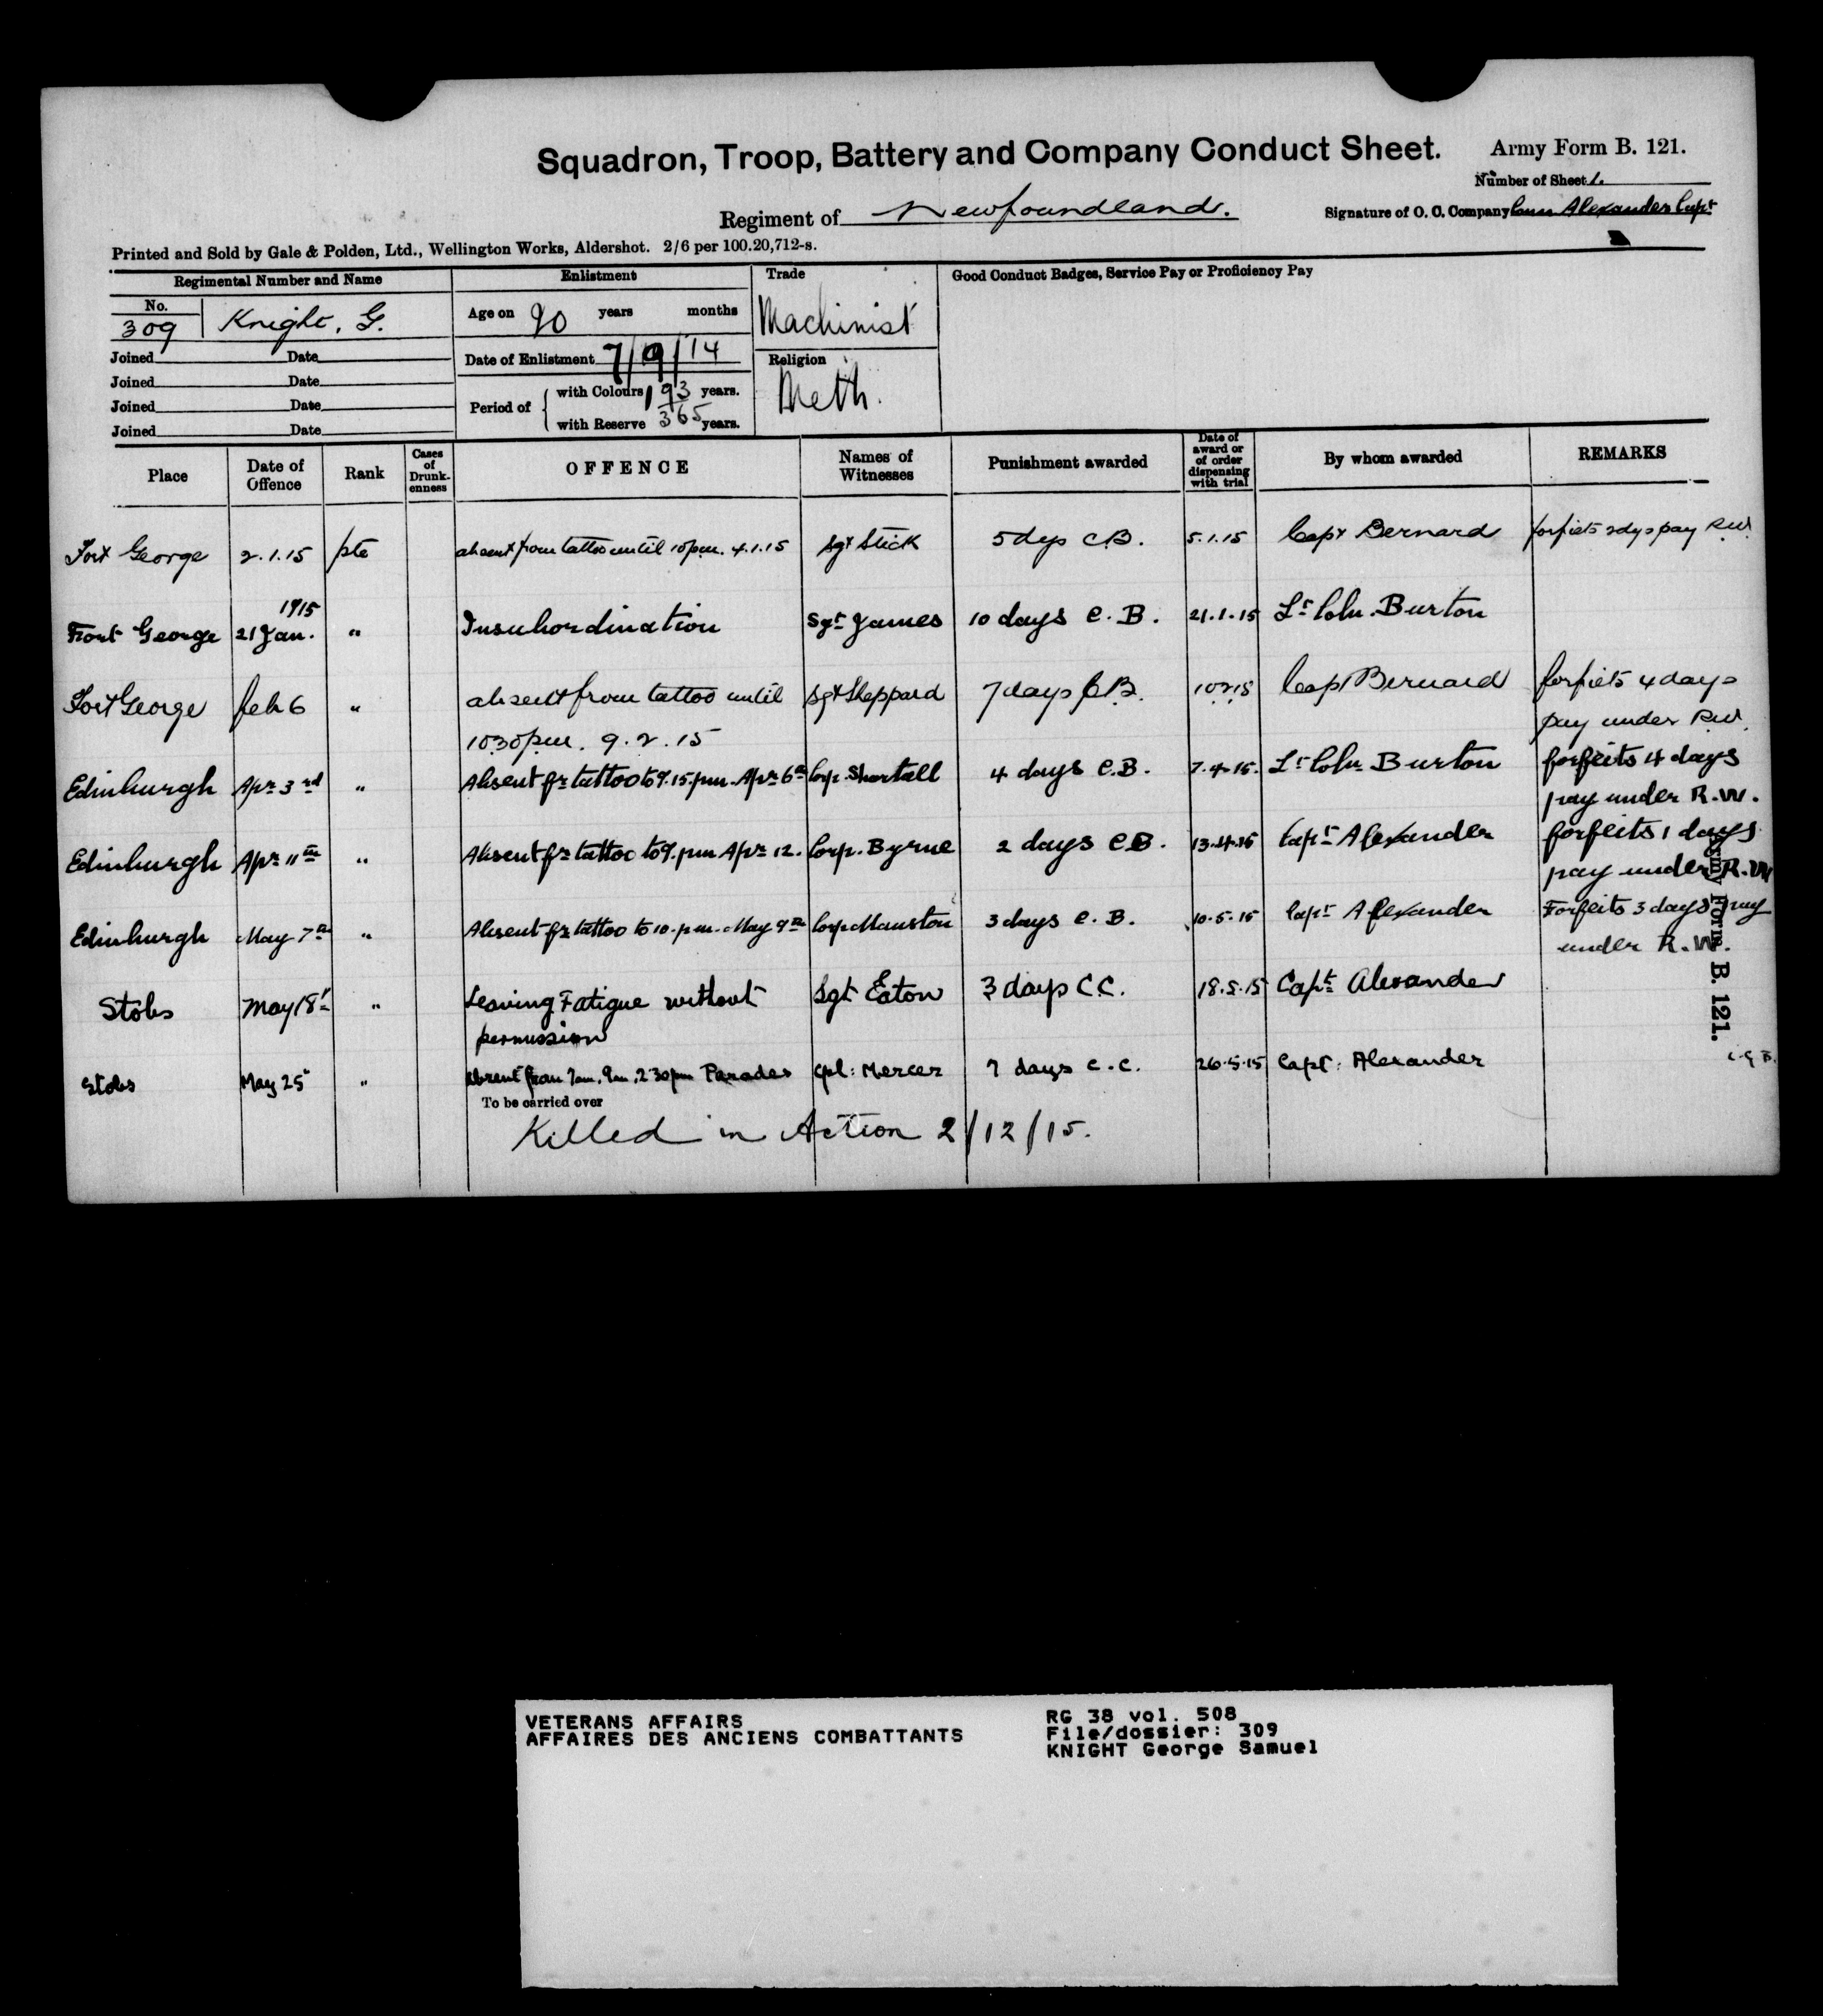 Squadron, Troop, Battery and Company Conduct Sheet.
Army Form B. 121.
Number of Sheet 1.
Regiment of Newfoundland.
Signature of O. C. Company Alexander Capt
Printed and Sold by Gale & Polden, Ltd., Wellington Works, Aldershot. 2/6 per 100.20,712-s.
Regimental Number and Name
Enlistment
Trade
Good Conduct Badges, Service Pay or Proficiency Pay
No.
309 Knight, G.
Age on 20 years months
Machinist
Joined Date
Date of Enlistment 7/9/14
Religion
Joined Date
Period of with Colours 193 years.
Meth.
Joined Date
with Reserve 365 years.
Joined Date
Place Date of Offence Rank Cases of Drunkenness OFFENCE Names of Witnesses Punishment awarded Date of award or of order dispensing with trial By whom awarded REMARKS
Fort George 2.1.15 pte absent from tattoo until 10 p.m. 4.1.15 Sgt Stick 5 dys C.B. 5.1.15 Capt Bernard forfiets 2 dys pay R.W.
1915
Fort George 21 Jan. " Insubordination Sgt James 10 days C.B. 21.1.15 Lt Coln. Burton
Fort George Feb 6 " absent from tattoo until Sgt Sheppard 7 days C.B. 10.2.15 Capt Bernard forfiets 4 days
10.30 p.m. 9.2.15 pay under R.W.
Edinburgh Apr 3rd " Absent fr tattoo to 9.15. p.m. Apr 6th Corp. Shortall 4 days C.B. 7.4.15. Lt Coln Burton forfeits 4 days
pay under R.W.
Edinburgh Apr 11th " Absent fr tattoo to 9. p.m Apr 12. Corp. Byrne 2 days C.B. 13.4.15 Capt Alexander forfeits 1 days
pay under R.W
Edinburgh May 7th " Absent fr tattoo to 10. p.m. May 9th Corp Manston 3 days C.B. 10.5.15 Capt Alexander Forfeits 3 days pay
under R.W.
Stobs May 18th " Leaving Fatigue without Sgt Eaton 3 days C.C. 18.5.15 Capt Alexander
permission
Stobs May 25 " Absent from 7am. 9am. 2.30pm Parades Cpl. Mercer 7 days C.C. 26.5.15 Capt. Alexander
To be carried over
Killed in Action 2/12/15.
Army Form B. 121.
VETERANS AFFAIRS
AFFAIRES DES ANCIENS COMBATTANTS
RG 38 vol. 508
File/dossier: 309
KNIGHT George Samuel